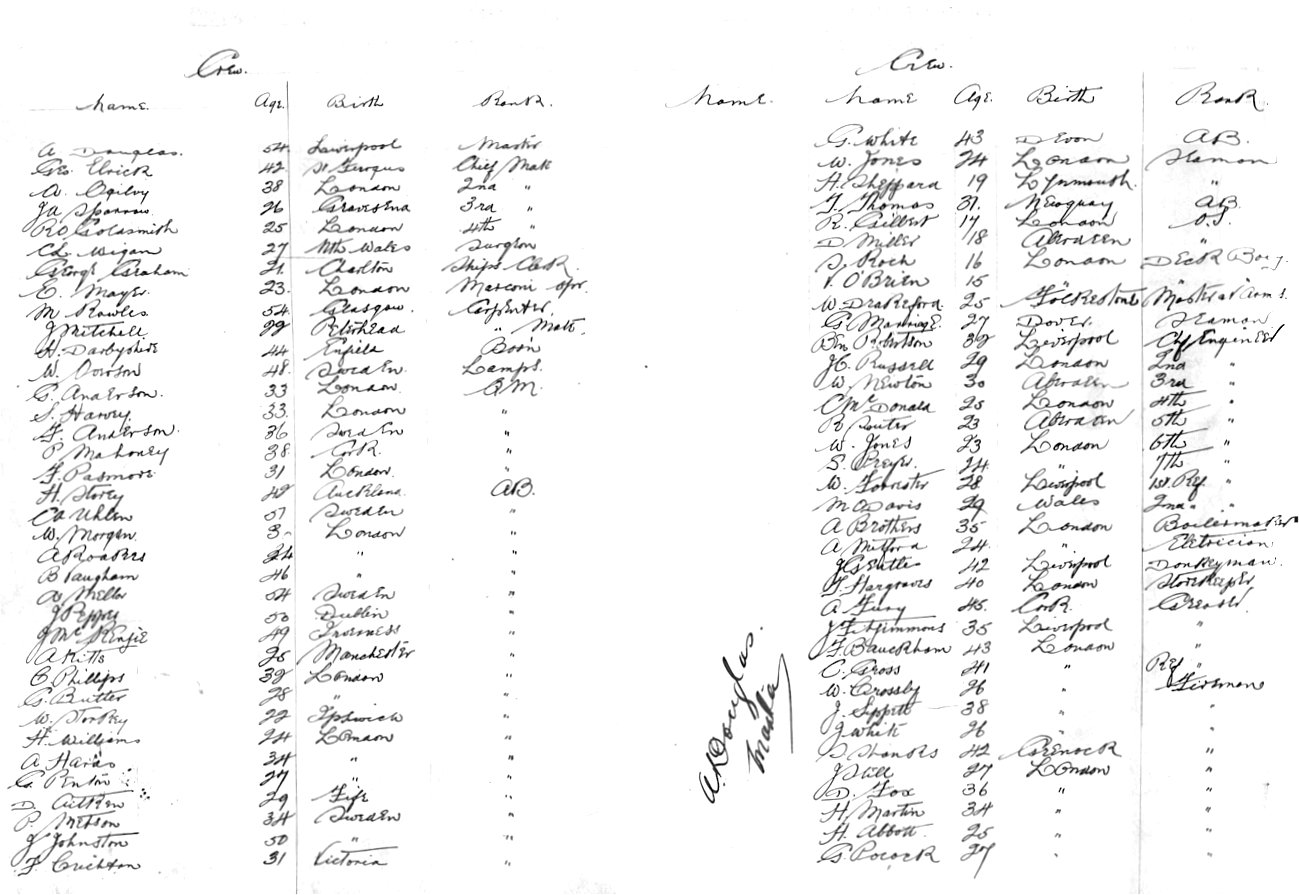 Crew.
Name. Age. Birth Rank.
A Douglas. 54 Liverpool Master
Geo. Elrick 42 St Fergus Chief Mate
A. Ogilvy 38 London 2nd "
Ja Sparrow 26 Gravesend 3rd "
RO Goldsmith 25 London 4th "
Ch. Wigan 27 Nth Wales Surgeon
George Graham 21 Charlton Ships Clerk
E. Mayer. 23. London Marconi Opr.
M Rowles 54. Glasgow Carpenter.
J Mitchell 22 Peterhead " Mate.
H. Darbyshire 44 Enfield Bosn
W. 48. Sweden Lamps.
G. Anderson. 33 London. Q.M.
S. Harvey. 33. London "
F. Anderson. 36 Sweden "
P Mahoney 38 Cork "
F. Padmore 31 London. "
H. Storey 42 Auckland AB.
Ca Uhlen 57 Sweden "
W. Morgan. 3- London "
A Roakers 24 " "
B Vaugham 46 " "
A Meller 54 Sweden "
J Pepper 50 Dublin "
J Mc Kenzie 49 Inverness "
A Kitts 25 Manchester "
C Phillips 32 London "
G. Butter 28 " "
W. Storkey 22 Ipswich "
H. Williams 24 London "
A Harris 34 " "
G. Penton 27 " "
D. Aitken 29 Fife "
P. Metson 34 Sweden "
J Johnston 50 " "
F Crichton 31 Victoria "
Name.
A. Douglas.
Master
Crew.
Name Age. Birth Rank.
G. White 43 Devon AB.
W. Jones 24 London Seaman
H. Sheppard 19 Lynmouth. "
F. Thomas 31. Newquay AB
R. Gilbert 17 London O.S.
D Miller 18 Aberdeen "
S. Roch 16 London Deck Boy.
O'Brien 15 " "
W. Drakeford 25 Folkestone Master at Arms.
G Manning E. 27 Dover. Seaman
Ben Robertson 32 Liverpool Chf Engineer
JC. Russell 29 London 2nd "
W. Newton 30 Aberdeen 3rd "
C Mc Donald 25 London 4th "
R Souter 23 Aberdeen 5th "
W. Jones 23 London 6th "
S. Preyer. 24 " 7th "
W. Forrester 28 Liverpool 1st. Ref "
M Davis 29 Wales 2nd " "
A Brothers 35 London Boilermaker
A Mitford 24. " Eletrician
J Gentles 42 Liverpool Donkeyman.
F. Hargraves 40 London Storekeeper
A Fury 45. Cork. Greaser.
J Fitzsimmons 35 Liverpool "
F. Bauckham 43 London "
C. Gross 41 " Ref "
W. Crossby 26 " Fireman
J. Sippett 38 " "
J White 26 " "
S Shankes 42 Greenock "
J Still 27 London "
D. Fox 36 " "
H Martin 34 " "
H. Abbott. 25 " "
G. Pocock 27 " "